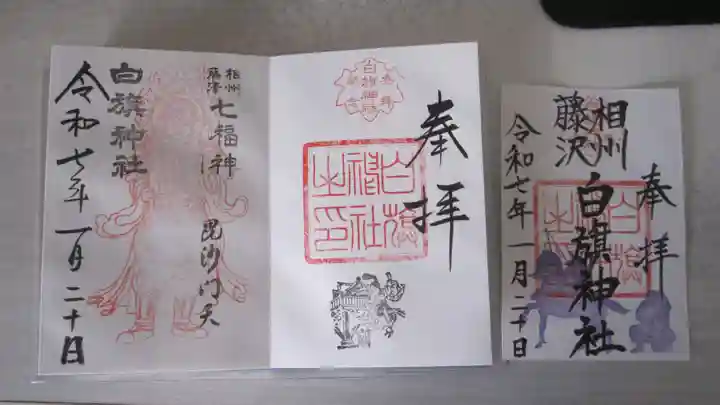 奉拝
白旗神社
白旗神社之印
相州
藤澤
七福神
毘沙門天
白旗神社
令和七年一月二十日
奉拝
相州
藤沢
白旗神社
令和七年一月二十日